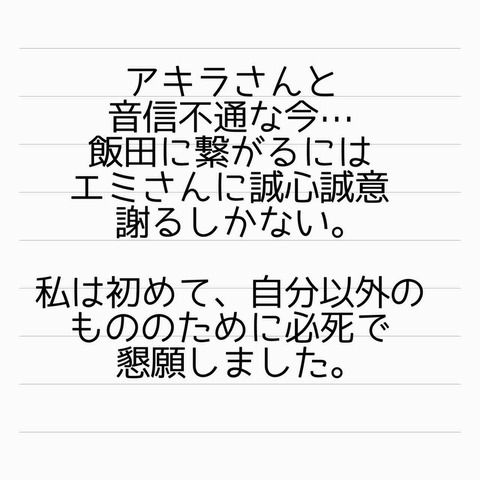 アキラさんと
音信不通な今…
飯田に繋がるには
エミさんに誠心誠意
謝るしかない。
私は初めて、自分以外の
もののために必死で
懇願しました。